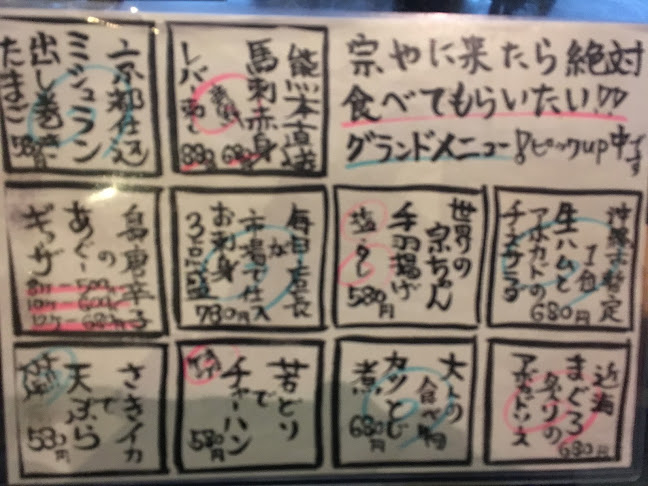 宗やに来たら絶対
食べてもらいたい!!
グランドメニュー!ピックup中です
熊本直送
馬刺赤身
680円
レバー刺し
880円
京都仕込
ミシュラン
出し巻き
たまご
580円
沖縄市暫定
1位
生ハムと
アボカドの
チーズサラダ
680円
世界の
宗ちゃん
手羽揚げ
塩・タレ
580円
毎日店長
が
市場で仕入
お刺身
3点盛
780円
島唐辛子
の
あぐー
ギョウザ
8ケー500円
10ケー600円
12ケー680円
近海
まぐろ
ユッケの
680円
大人の
食べ物
カツとじ
煮
680円
若どり
で
チャーハン
580円
さきイカ
で
天ぷら
530円